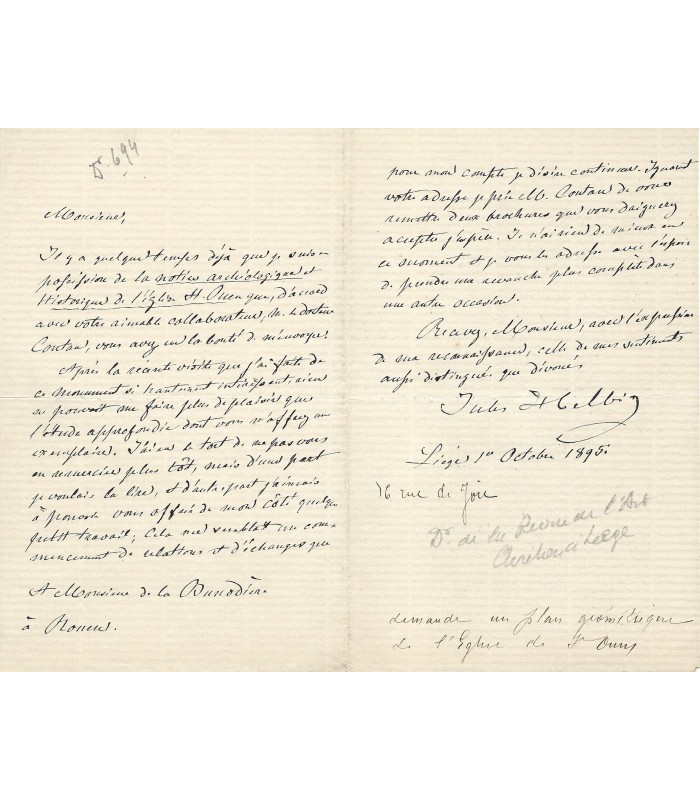 Dr. 694
Monsieur,
Il y a quelque temps déjà que je suis en
possession de la notice archéologique et
Historique de l'Eglise St. Ouen que, d'accord
avec votre aimable collaborateur, M. le docteur
Coutan, vous avez eu la bonté de m'envoyer.
Après la récente visite que j'ai faite de
ce monument si hautement intéressant, rien
ne pouvait me faire plus de plaisir que
l'étude approfondie dont vous m'offrez un
exemplaire. J'ai eu le tort de ne pas vous
en remercier plus tôt, mais d'une part
je voulais la lire, et d'autre part j'aimais
à pouvoir vous offrir de mon côté quelque
petit travail; Cela me semblait un com-
mencement de relations et d'échanges que
A Monsieur de la Bunodière
à Rouen.
pour mon compte je désire continuer. Ignorant
votre adresse je prie M. Coutan de vous
remettre deux brochures que vous daignerez
accepter j'espère. Je n'ai rien de mieux en
ce moment et je vous les adresse avec l'espoir
de prendre ma revanche plus complète dans
une autre occasion.
Recevez, Monsieur, avec l'expression
de ma reconnaissance, celle de mes sentiments
aussi distingués que dévoués
Jules Helbig
Liège 1r Octobre 1895.
rue de Joie
Dr. de la Revue de l'Art
Chrétien à Liège
demande un plan géométrique
de l'Eglise de St Ouen